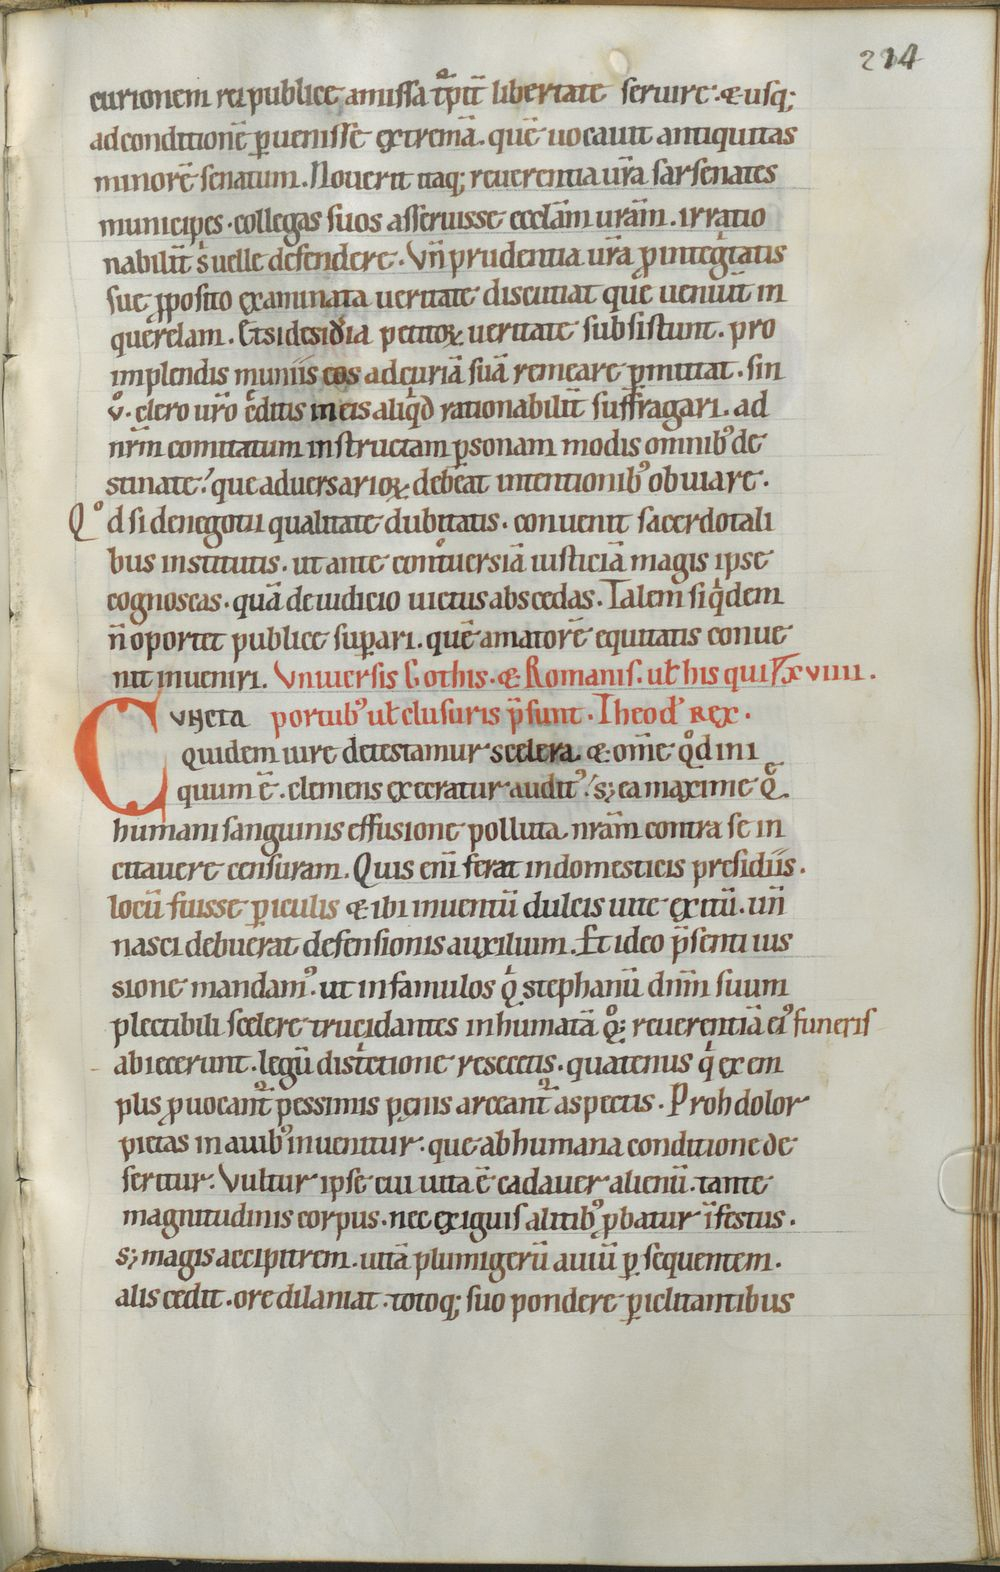 214
curionem rei publicę amissa t̄pit̄ libertate seruire. & usq;
ad conditionē ꝑuenisse extremā. quē uocauit antiquitas
minorē senatum. Nouerit itaq; reuerentia ur̄a sarsenates
municipes. collegas suos asseruisse eccl̄am urām. irratio
nabilit̄ s̓ uelle defendere. Vn̄ prudentia ur̄a ꝓ integ̓tatis
suę ꝓposito examinata ueritate discutiat que ueniūt in
querelam. Et si desid̓ia petitoꝝ ueritate subsistunt. pro
implendis muniis eos ad curiā suā remeare ꝑmittat. sin
v̊. clero ur̄o c̓ditis in eis aliq̓d rationabilit̄ suffragari. ad
nr̄m comitatum instructam ꝑsonam modis omnib᾽ de
stinate. que aduersarioꝝ debeat intentionib᾽ obuiare.
Q̊d si de negotii qualitate dubitatis. conuenit sacerdotali
bus institutis. ut ante cont̊uersiā iusticiā magis ipse
cognoscas. quā de iudicio uictus abscedas. Talem siq̓dem
n̄ oportet publice suꝑari. quē amatorē equitatis conue
nit inueniri. Vniuersis Gothis. & Romanis. ut̄ his qui xviiii.
Cuncta portub᾽ ut̄ clusuris p̄sunt. Theod̓ rex.
quidem iure detestamur scelera. & om̄e q̊d ini
quum ē. clemens execratur audit᾽. s; ea maxime q̄
humani sanguinis effusione polluta nrām contra se in
citauere censuram. Quis eni ferat in domesticis presidiis.
locū fuisse ꝑiculis & ibi inuentū dulcis uite exitū. un̄
nasci debuerat defensionis auxilium. Et ideo p̄senti ius
sione mandam᾽. ut in famulos q̓ stephanū dn̄m suum
plectibili scelere trucidantes inhumatā q̊; reuerentiā ei᾽ funeris
abiecerunt. legū dist̓ctione resecetis. quatenus q̓ exem
plis ꝓuocant̄ pessimis pęnis arceant̄ aspectis. Proh dolor
pietas in auib᾽ inuenitur. que ab humana conditione de
seritur. Vultur ipse cui uita ē cadauer alienū. tante
magnitudinis corpus. nec exiguis alitib᾽ ꝓbatur īfestus.
s; magis accipitrem. uitā plumigerū auiū ꝑsequentem.
alis cedit. ore dilaniat. totoq; suo pondere ꝑiclitantibus